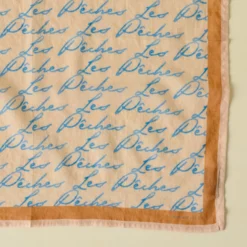 Les Pêches Les
Pêches Les Pêches
Les Pêches Les Pêches
Pêches Les Pêches
Les Pêches Les Pêches
Pêches Les Pêches
Les Pêches Les Pêches
Pêches Les Pêches
Les Pêches Les Pêches
Pêches Les Pêches